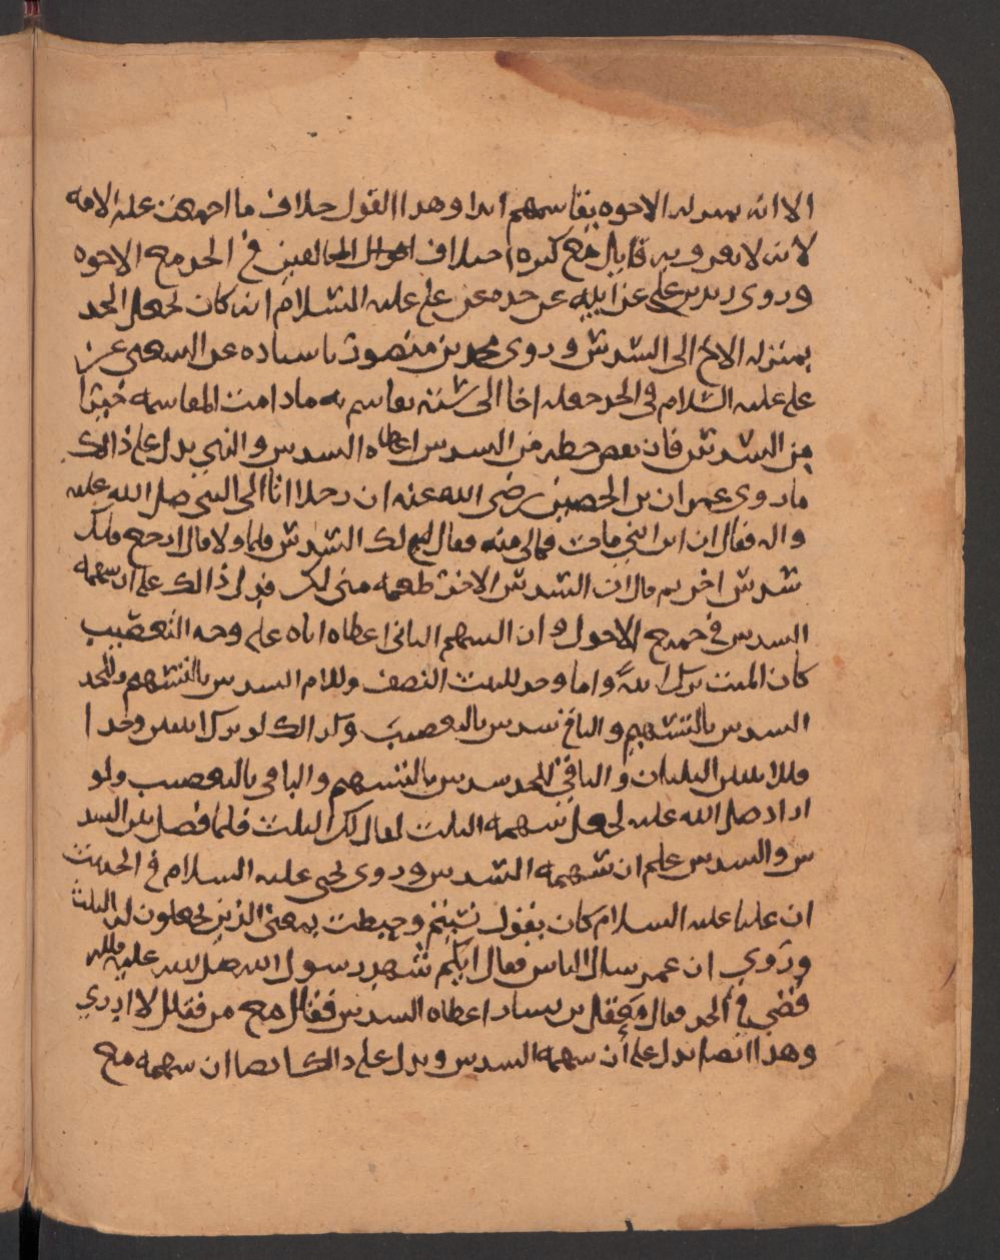 الا انه بمنزلة الاخوة يقاسمهم ابدا وهذا القول خلاف ما اجمعت عليه الامة
لانه لا يعرف به قايل مع كثرة اختلاف اقوال المخالفين في الجد مع الاخوة
وروى زيد بن علي عن ابيه عن جده عن علي عليه السلام انه كان يجعل الجد
بمنزلة الاخ الى السدس وروى محمد بن منصور باسناده عن الشعبي عن
علي عليه السلام في الجد جعله اخا الى ستة يقاسم به مادامت المقاسمة خيرا
من السدس فان نقص حظه من السدس اعطاه السدس والذي يدل على ذالك
ما روى عمران بن الحصين رضي الله عنه ان رجلا اتا الى النبي صلى الله عليه
واله فقال ان ابن ابني مات فمالي منه فقال لك السدس فلما ولا قال ارجع فلك
سدس اخر ثم قال ان السدس الاخر طعمة مني لك فدل ذالك على ان سهمه
السدس في جميع الاحوال وان السهم الثاني اعطاه اياه على وجه التعصيب
كان الميت ترك ابنة واما وجد للبنت النصف وللام السدس بالتسهم وللجد
السدس بالتسهيم والباقي سدس بالتعصيب وكذالك لو ترك ابنتين وجدا
فللابنتين الثلثان والباقي للجد سدس بالتسهم والباقي بالتعصيب ولو
اراد صلى الله عليه يجعل سهمه الثلث لقال لك الثلث فلما فصل بين السد
س والسدس علم ان سهمه السدس وروى يحيى عليه السلام في الحديث
ان عليا عليه السلام كان يقول نسيتم وحفظت يعني الذين يجعلون له الثلث
وروي ان عمر سال الناس فقال ايكم شهد رسول الله صلى الله عليه واله
قضى في الجد فقال معقل بن يسار اعطاه السدس فقال مع من فقال لا ادري
وهذا ايضا يدل على أن سهمه السدس ويدل على ذالك ايضا ان سهمه مع